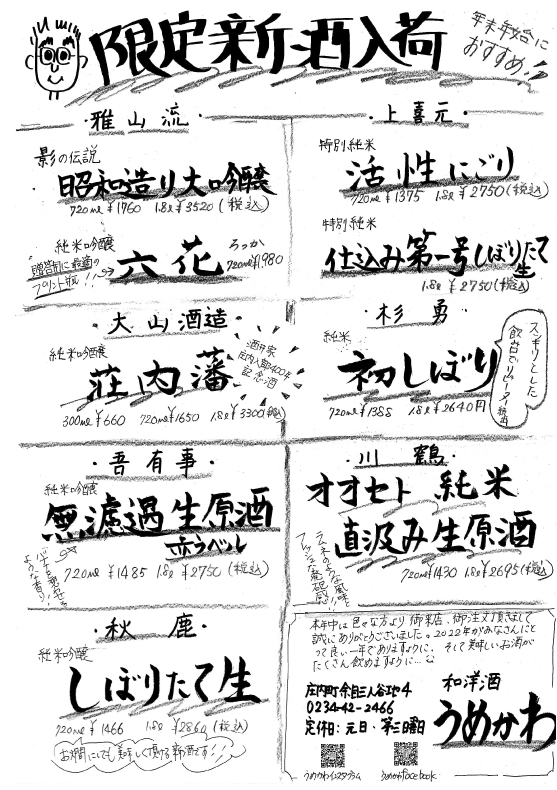 限定新酒入荷
年末年始に
おすすめ!!
・雅山流・
影の伝説
昭和造り大吟醸
720ml ¥1760 1.8l ¥3520 (税込)
純米吟醸
六花
ろっか
720ml ¥1,980
贈答用に最適の
プリント瓶!!
・上喜元・
特別純米
活性にごり
720ml ¥1375 1.8l ¥2750 (税込)
特別純米
仕込み第一号しぼりたて
生
1.8l ¥2750 (税込)
・大山酒造・
純米吟醸
荘内藩
酒井家
庄内入部400年
記念酒
300ml ¥660 720ml ¥1650 1.8l ¥3300 (税込)
・杉勇・
純米
初しぼり
720ml ¥1388 1.8l ¥2640円
スッキリとした
飲口でリピーター続出
・吾有事・
純米吟醸
無濾過生原酒
赤ラベル
720ml ¥1485 1.8l ¥2750 (税込)
ような香り!
・川鶴・
オオセト 純米
直汲み生原酒
ラムネのような風味と
フレッシュな微炭酸感!
720ml ¥1430 1.8l ¥2695 (税込)
・秋鹿・
純米吟醸
しぼりたて生
720ml ¥1466 1.8l ¥2860 (税込)
お燗にしても美味しく頂ける新酒です!!
本年中は色々な方より御来店、御注文頂きまして
誠にありがとうございました。2022年がみなさんにと
って良い一年でありますように、そして美味しいお酒が
たくさん飲めますように…
庄内町余目三人谷地4
0234-42-2466
定休日:元日・第三日曜日
和洋酒
うめかわ
うめかわインスタグラム
うめかわfacebook